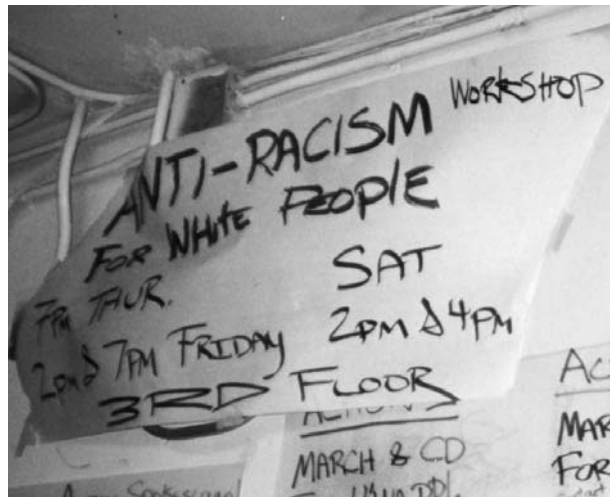 ANTI-RACISM WORKSHOP
FOR WHITE PEOPLE
7PM THUR.
SAT
2PM & 7PM FRIDAY
2PM & 4PM
3RD FLOOR
ACTIONS
MARCH & CD